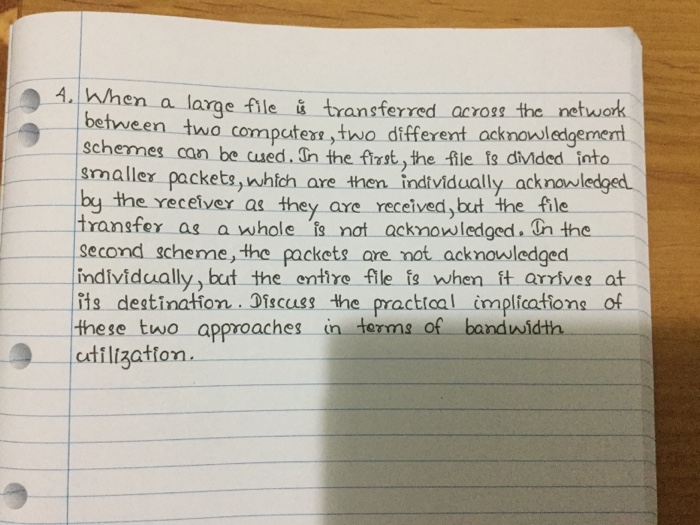 4. When a large file is transferred across the network
between two computers, two different acknowledgement
schemes can be used. In the first, the file is divided into
smaller packets, which are then individually acknowledged
by the receiver as they are received, but the file
transfer as a whole is not acknowledged. In the
second scheme, the packets are not acknowledged
individually, but the entire file is when it arrives at
its destination. Discuss the practical implications of
these two approaches in terms of bandwidth
utilization.